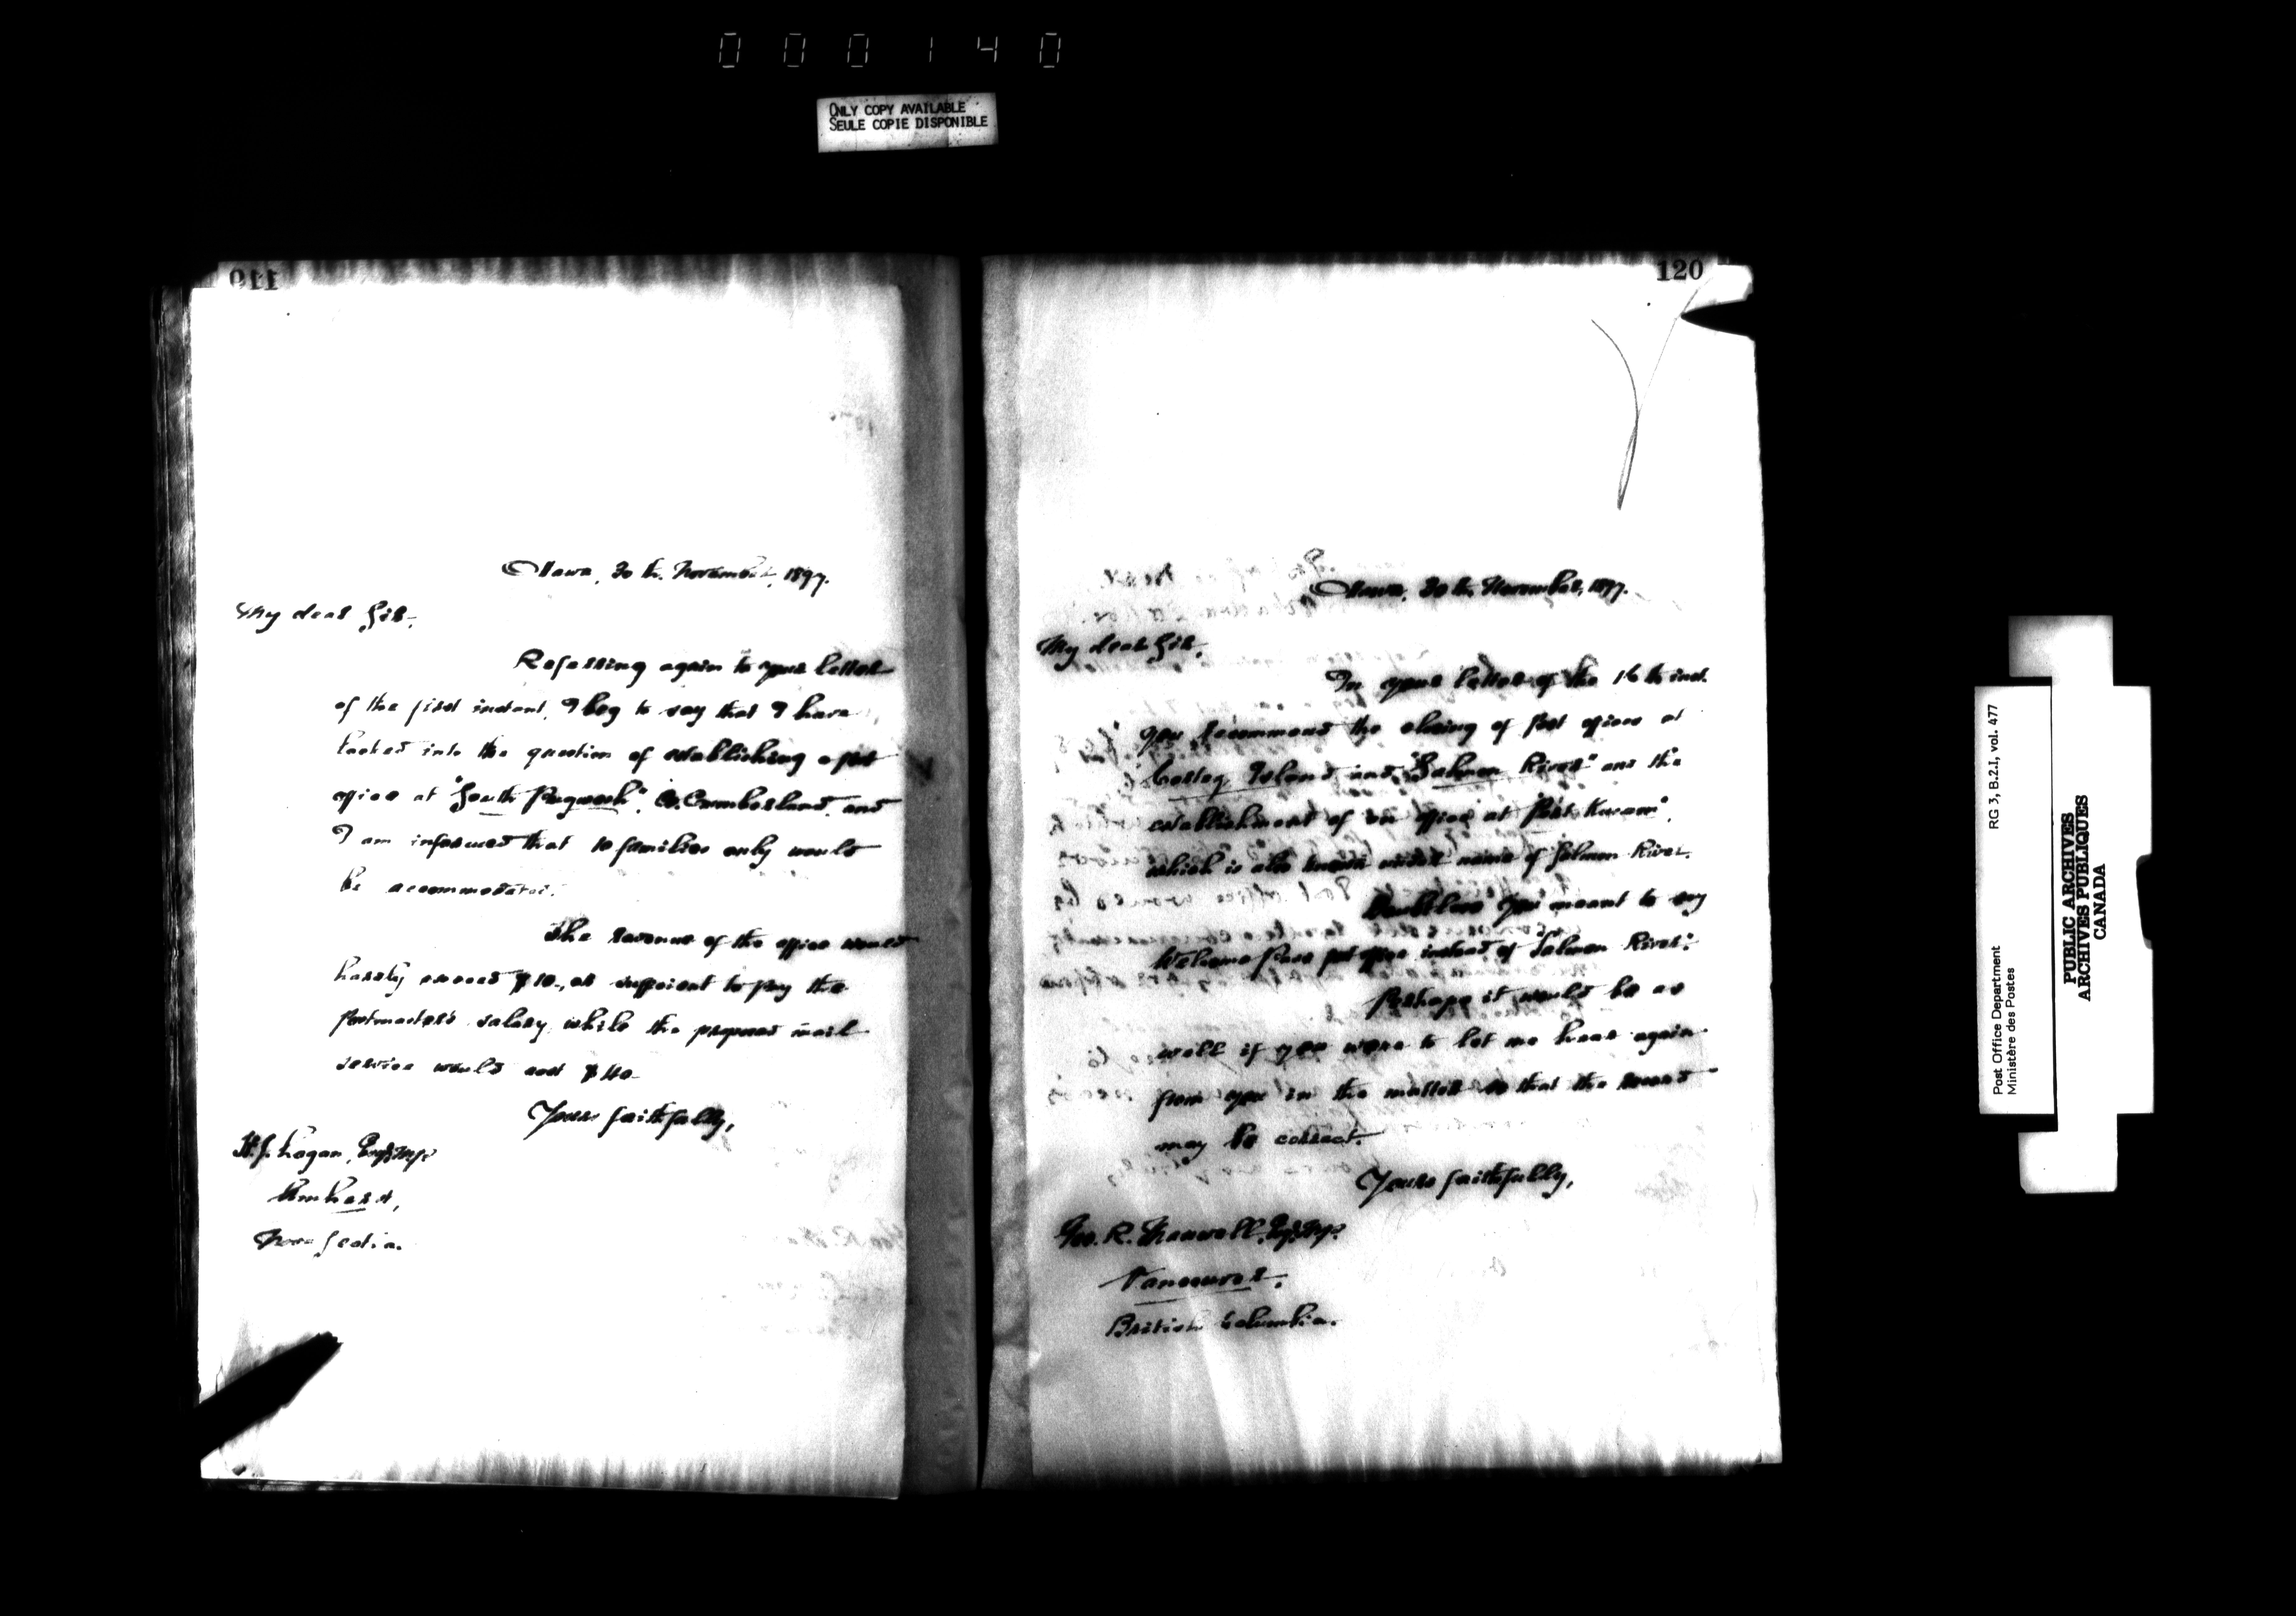 000140
ONLY COPY AVAILABLE
SEULE COPIE DISPONIBLE
119
Ottawa, 30th. November, 1897.
My dear Sir,
Referring again to your letter
of the first instant, I beg to say that I have
looked into the question of establishing a post
office at "South Pugwash", Co. Cumberland, and
I am informed that 10 families only would
be accommodated.
The revenue of the office would
hardly exceed $10., or sufficient to pay the
Postmaster's salary, while the proposed mail
service would cost $40.
Yours faithfully,
H. J. Logan, Esq., M.P.
Amherst,
Nova Scotia.
120
Ottawa, 30th November, 1897.
My dear Sir,
In your letter of the 16th inst.
you recommend the closing of post offices at
Cortez Island and "Salmon River" and the
establishment of an office at "Port Kusam",
which is also known under name of Salmon River.
Doubtless you meant to say
Welcome Pass post office instead of "Salmon River".
Perhaps it would be as
well if you were to let me hear again
from you in the matter so that the record
may be correct.
Yours faithfully,
Geo. R. Maxwell, Esq., M.P.
Vancouver,
British Columbia.
Post Office Department RG 3, B.2.I, vol. 477
Ministère des Postes
PUBLIC ARCHIVES
ARCHIVES PUBLIQUES
CANADA